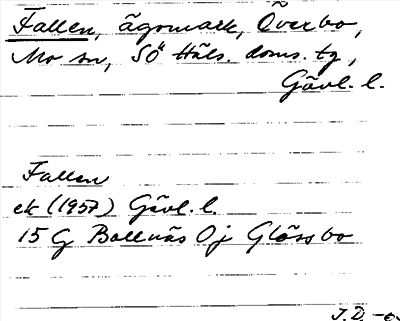 Fallen, ägomark, Överbo,
Mo sn, Sö Häls. doms. tg,
Gävl. l.
Fallen
ek (1957) Gävl. l.
15 G Bollnäs Oj Glössbo
J.D.